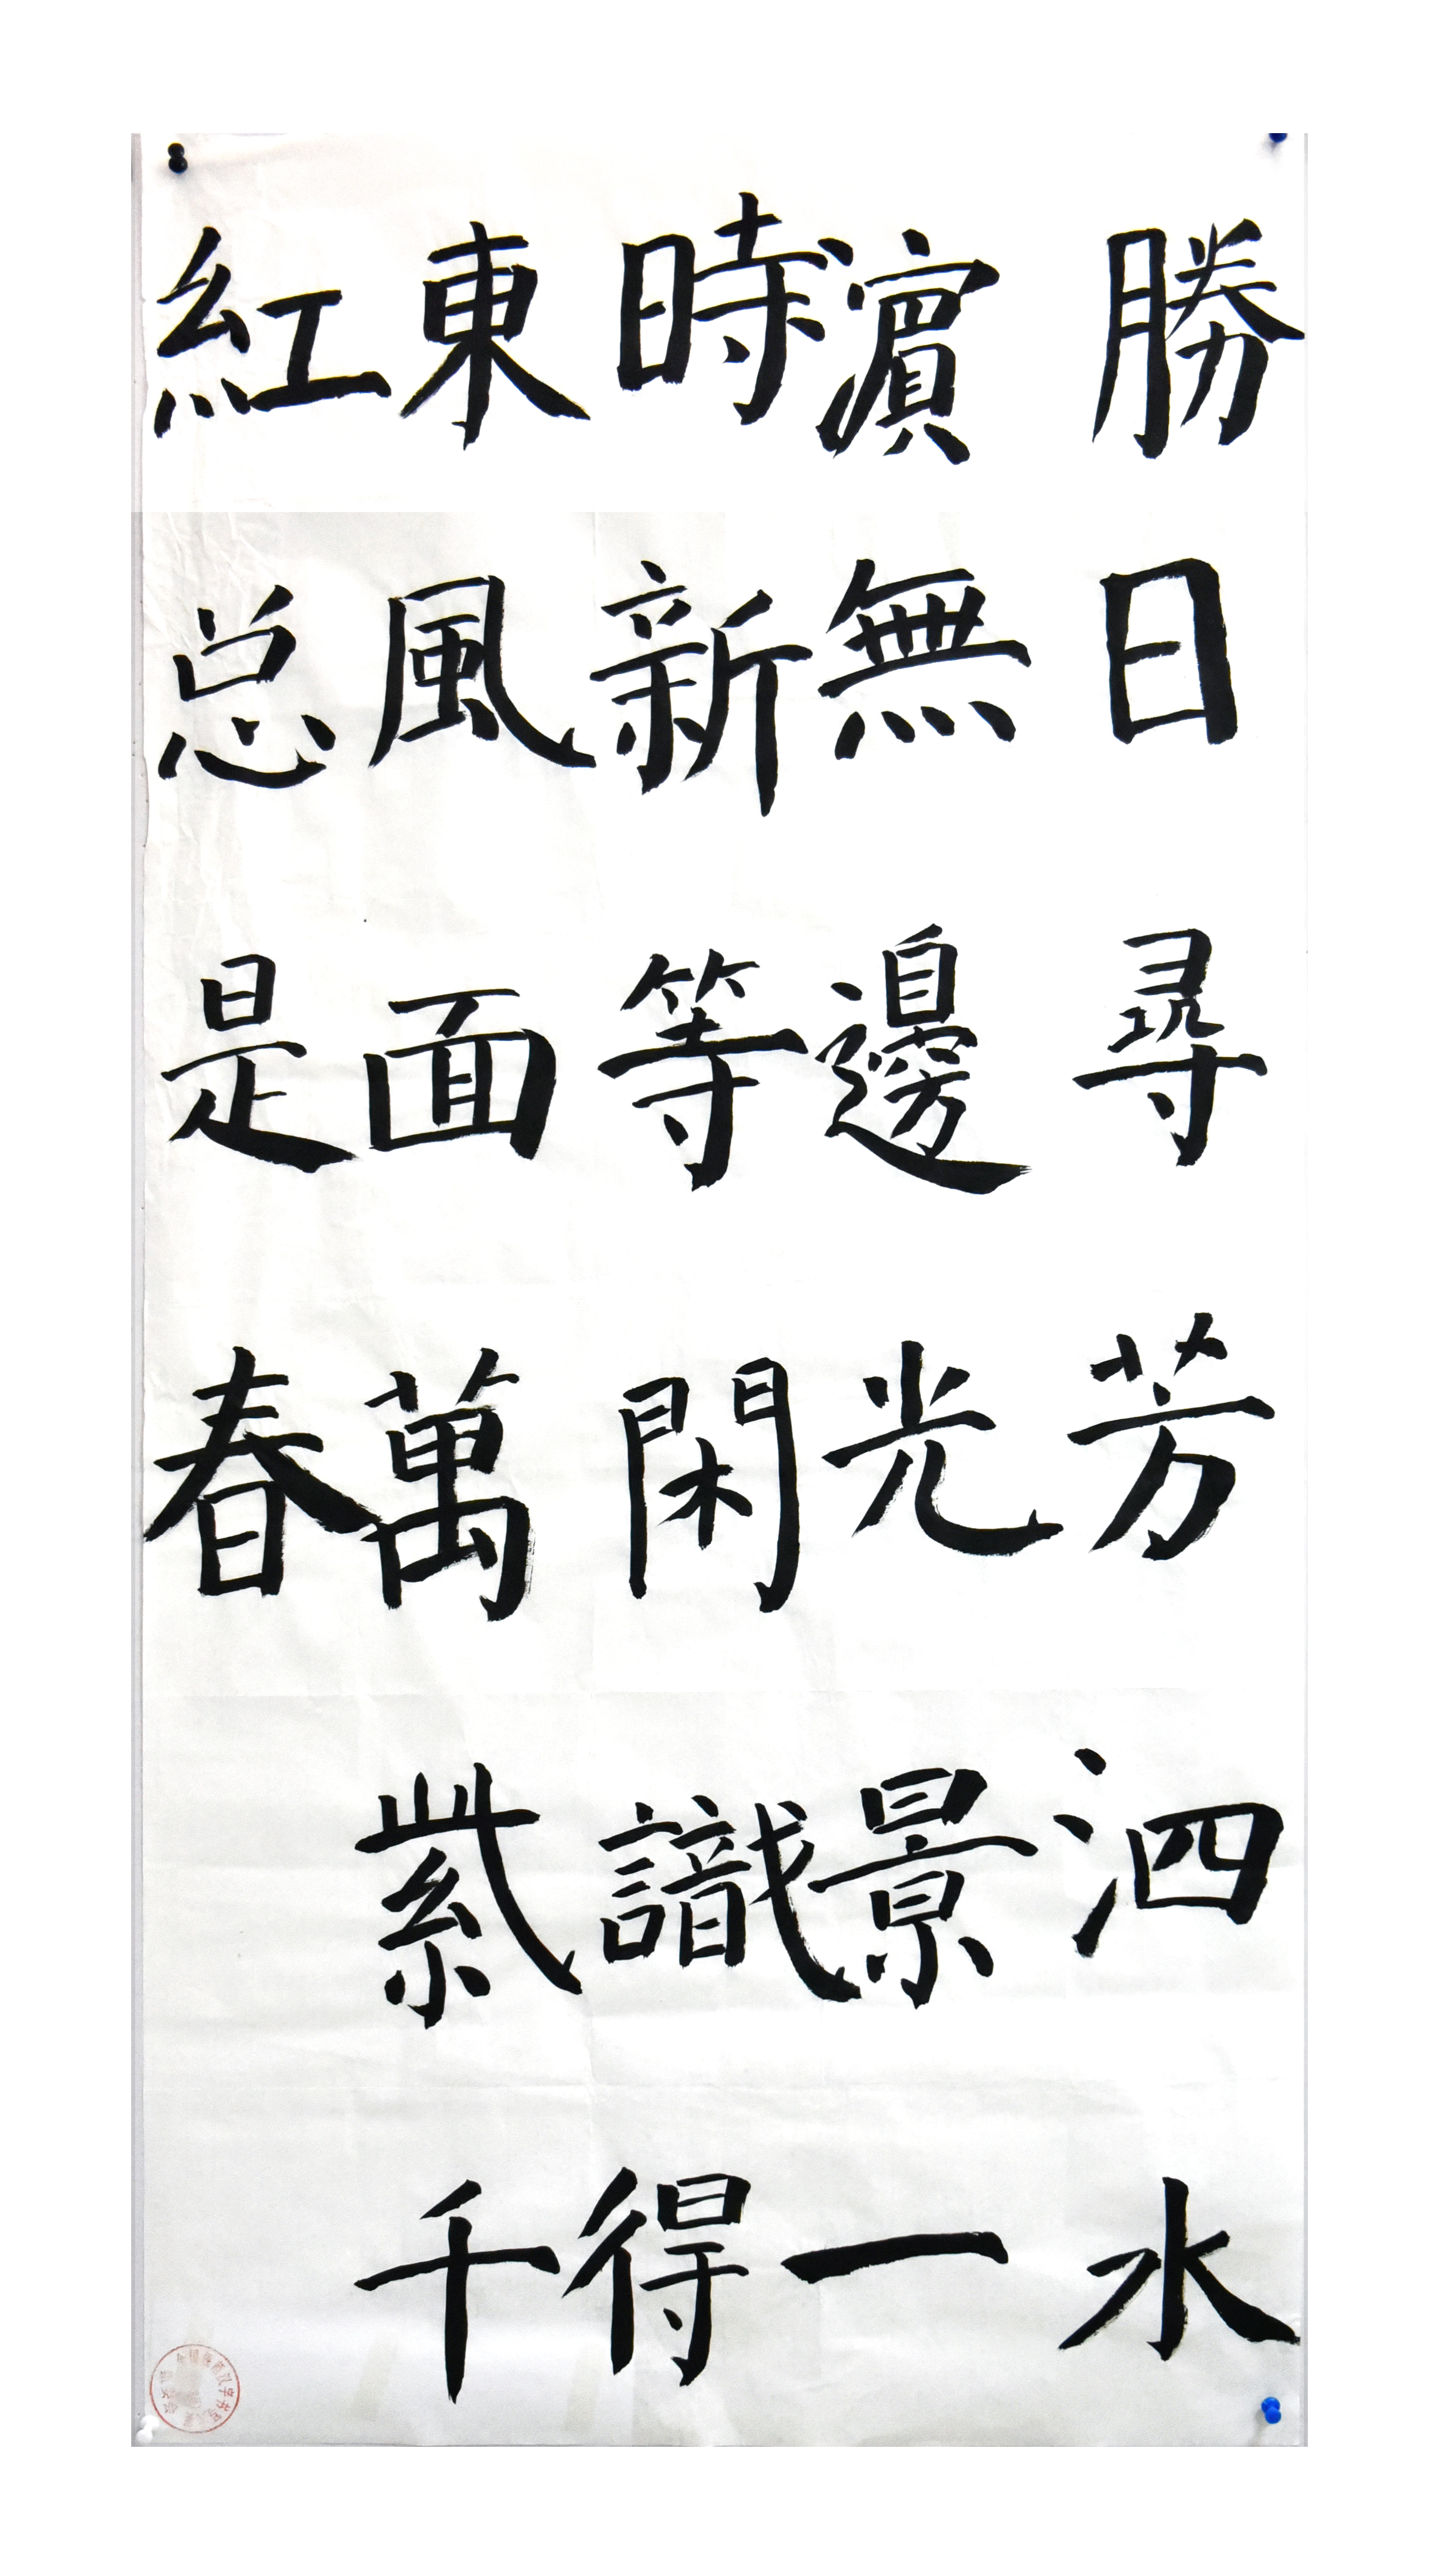 勝日尋芳泗水
濵無邊光景一
時新等閑識得
東風面萬紫千
紅总是春